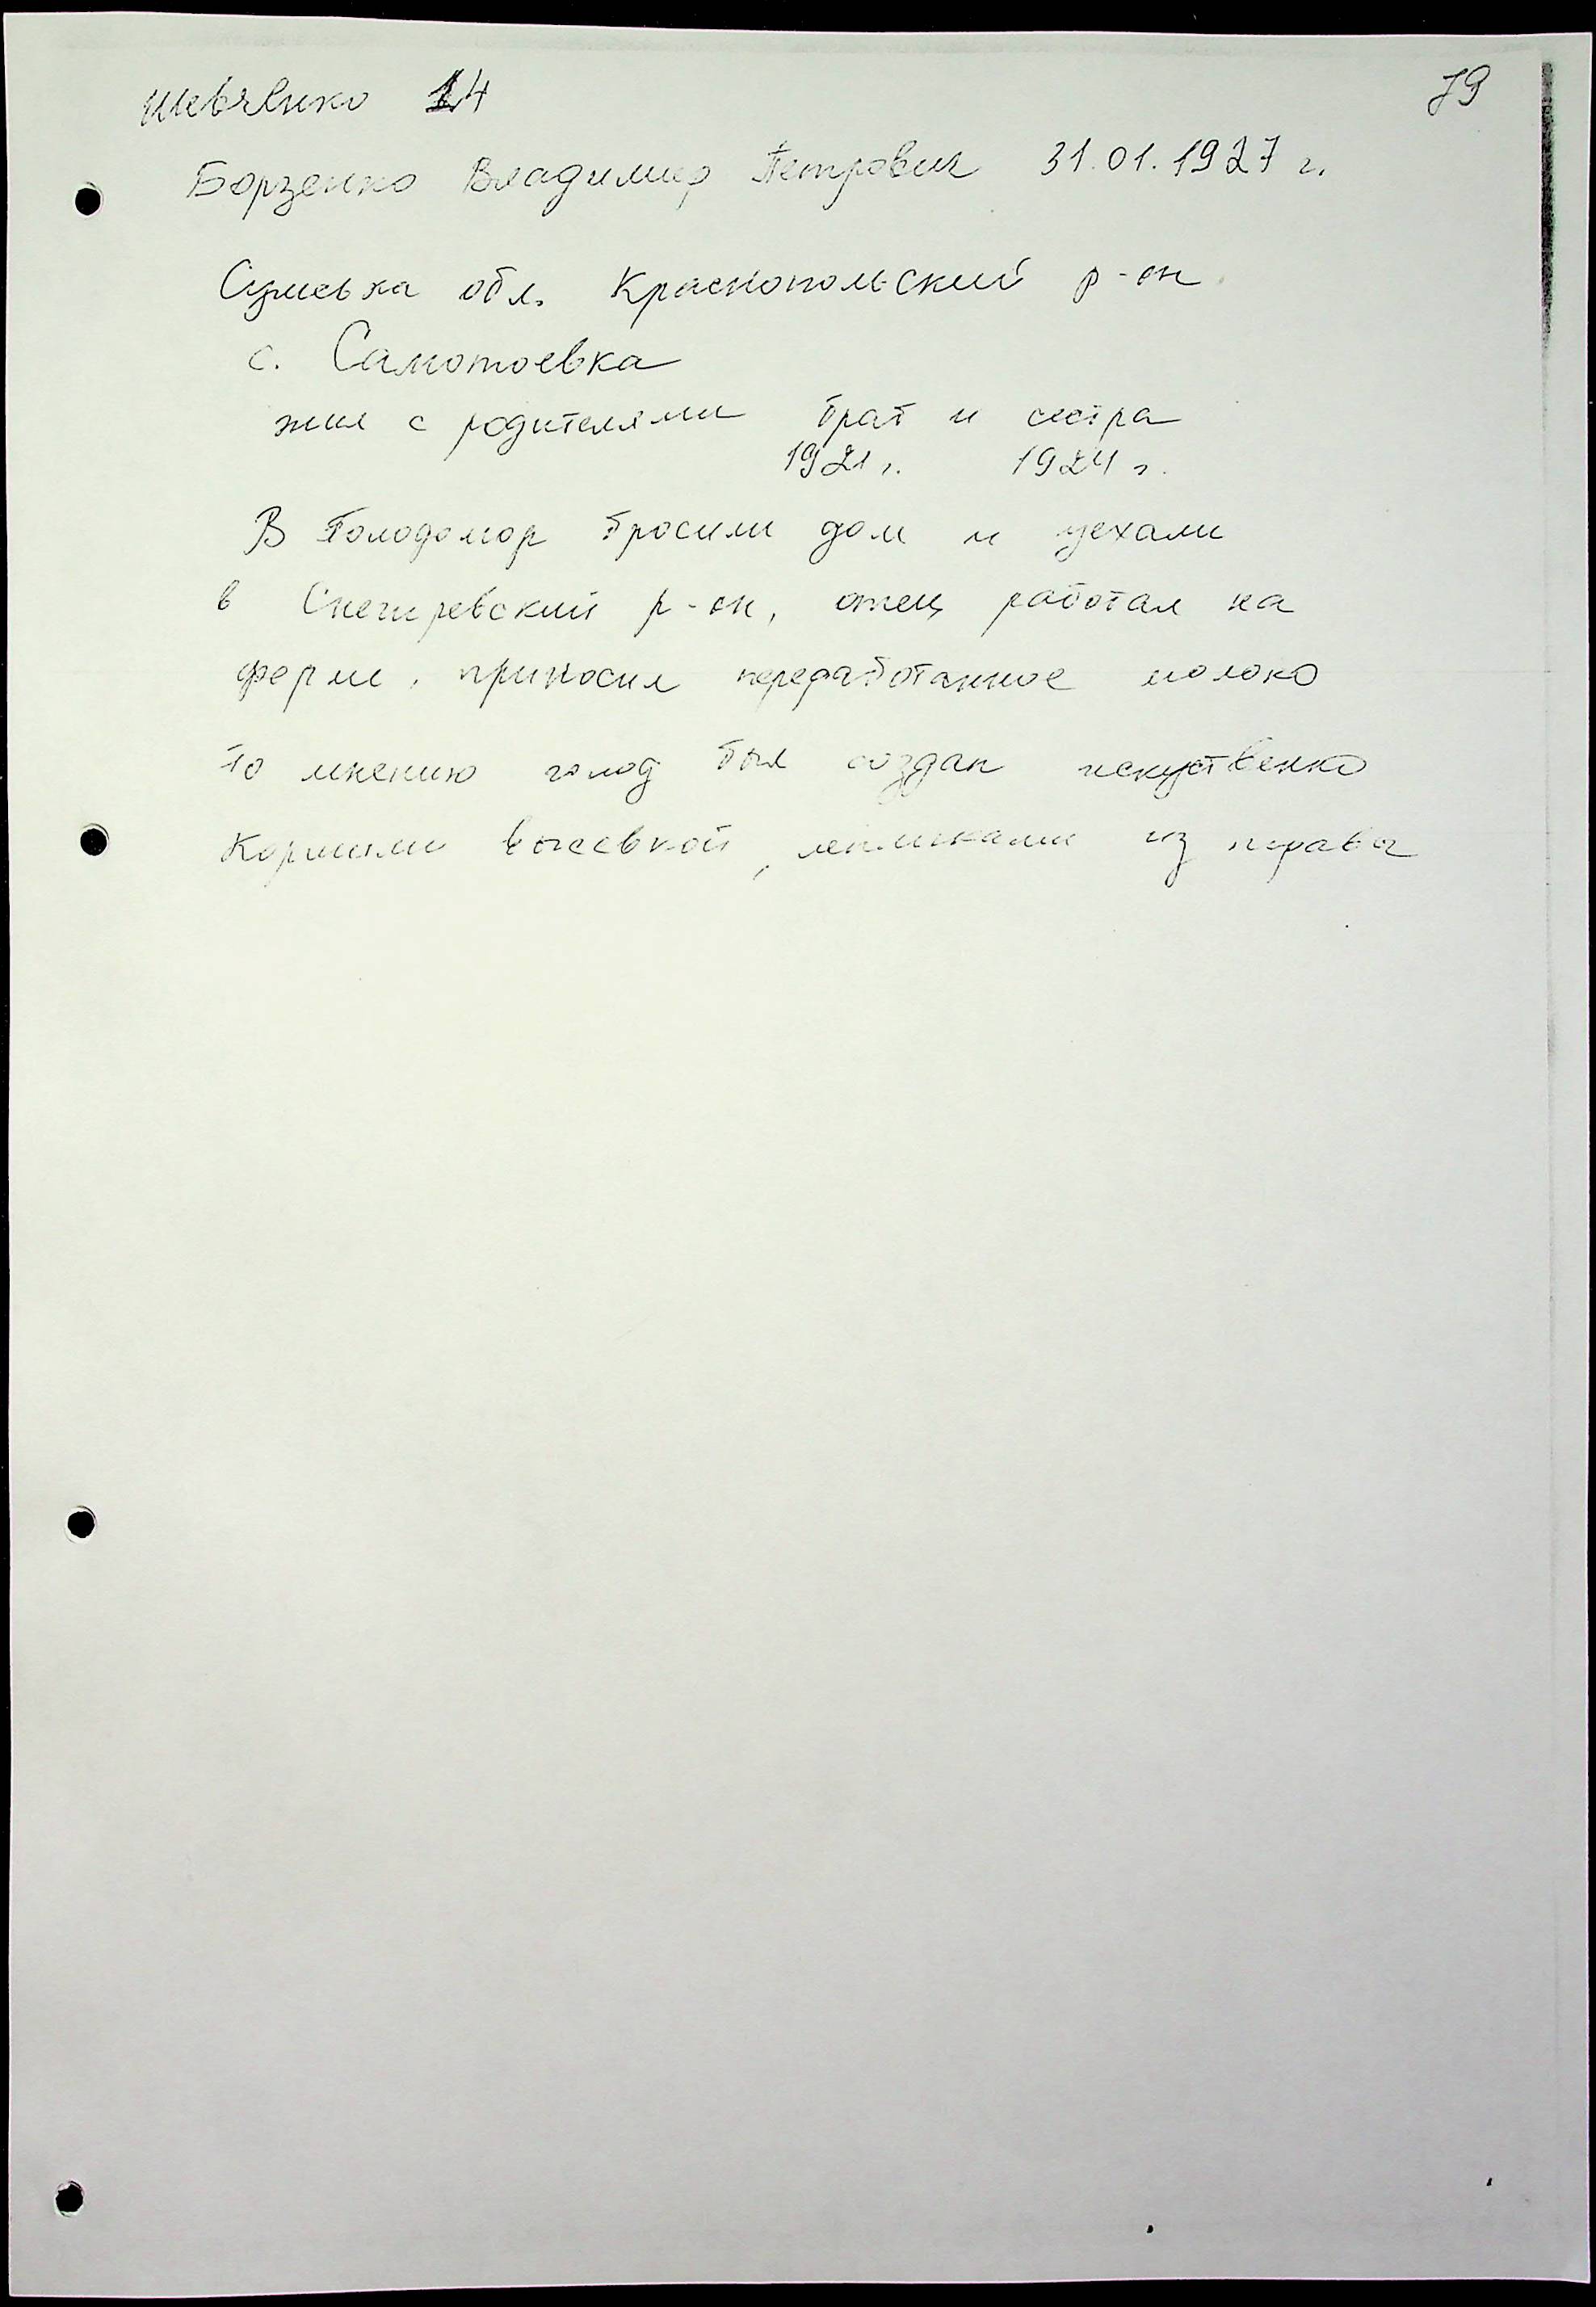 Шевченко 14
79
Борзенко Владимир Петрович 31.01.1927 г.
Сумська обл. Краснопольский р-он
с. Самотоевка
жил с родителями брат и сестра
1921 г. 1924 г.
В Голодомор бросили дом и уехали
в Снегиревский р-он, отец работал на
ферме, приносил переработанное молоко
По мнению голод был создан искуственно
Кормили высевкой, лепешками из травы